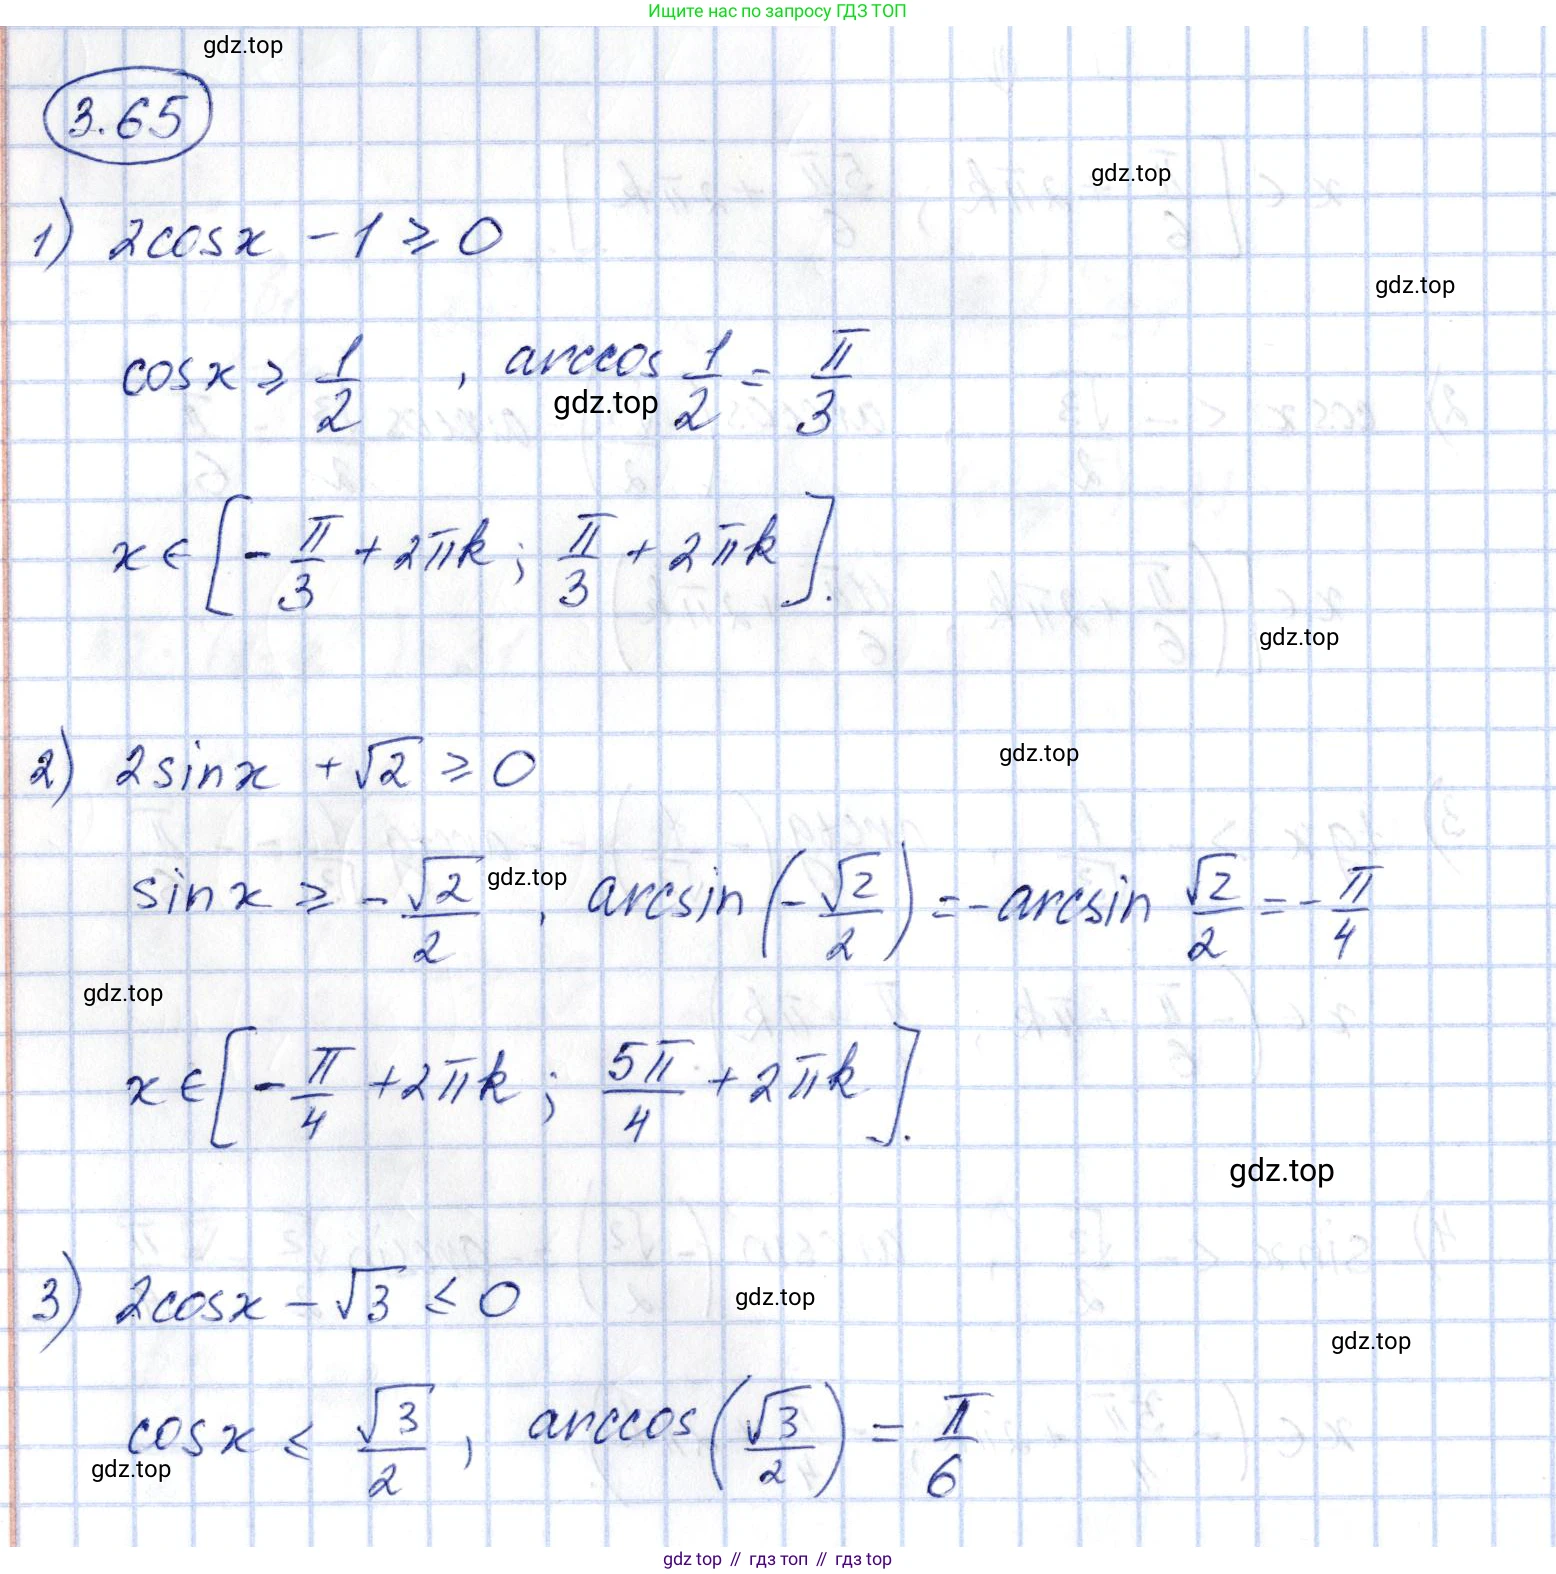 Ищите нас по запросу ГДЗ ТОП
gdz.top
3.65
gdz.top
1) 2cosx - 1 ⩾ 0
gdz.top
cosx ⩾ 1/2 , arccos 1/2 = π/3
gdz.top
x ∈ [-π/3 + 2πk ; π/3 + 2πk].
gdz.top
2) 2sinx + √2 ⩾ 0
gdz.top
sinx ⩾ -√2/2 , arcsin(-√2/2) = -arcsin √2/2 = -π/4
gdz.top
gdz.top
x ∈ [-π/4 + 2πk ; 5π/4 + 2πk].
gdz.top
3) 2cosx - √3 ≤ 0
gdz.top
gdz.top
cosx ≤ √3/2 , arccos(√3/2) = π/6
gdz.top
gdz top // гдз топ // гдз top